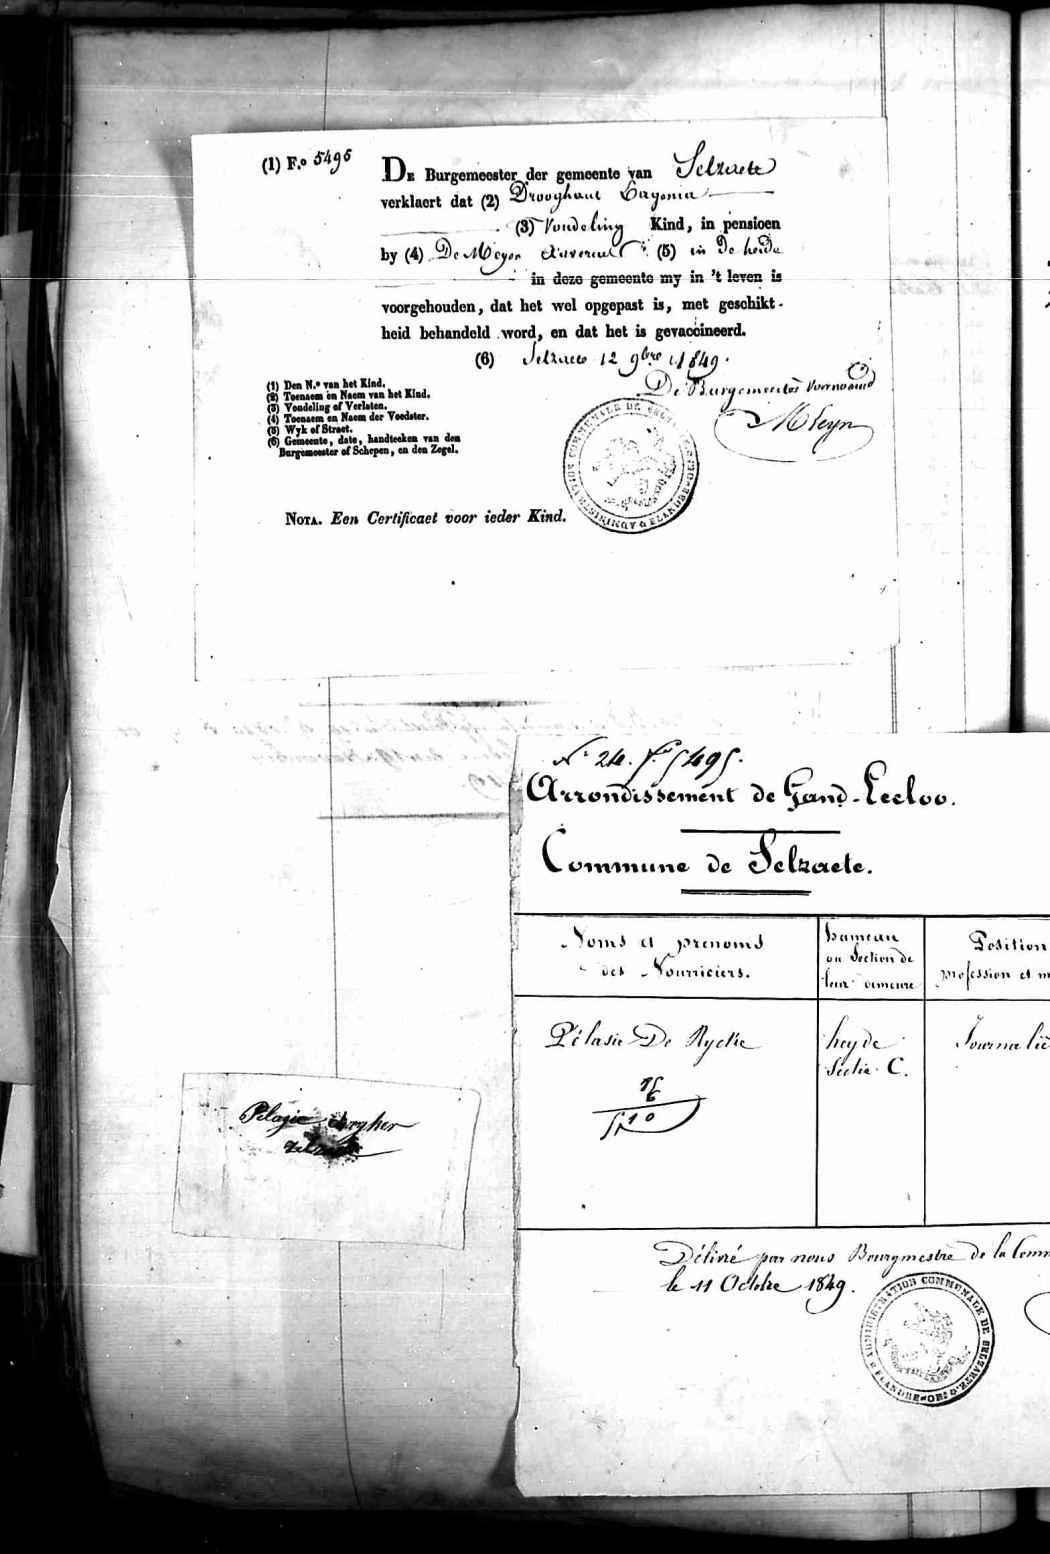 (1) F.º 5496
DE Burgemeester der gemeente van Selzaete
verklaert dat (2) Drooghaut
(3) Vondeling Kind, in pensioen
by (4) De Meyer (5) in De heide
in deze gemeente my in 't leven is
voorgehouden, dat het wel opgepast is, met geschikt-
heid behandeld word, en dat het is gevaccineerd.
(6) Selzaete 12 9bre 1849.
De Burgemeester
(1) Den N.º van het Kind.
(2) Toenaem en Naem van het Kind.
(3) Vondeling of Verlaten.
(4) Toenaem en Naem der Voedster.
(5) Wyk of Straet.
(6) Gemeente, date, handteeken van den
Burgemeester of Schepen, en den Zegel.
NOTA. Een Certificaet voor ieder Kind.
Nº 24. fº 5495.
Arrondissement de Gand-Eecloo.
Commune de Selzaete.
Noms et prenoms
des Nourriciers.
hameau
ou Section de
leur demeure
Position
profession et m
Pélasie De Rycke
heyde
Sectie C.
Journaliè
Pelagie
Délivré par nous Bourgmestre de la Comm
le 11 Octobre 1849.
ADMINISTRATION COMMUNALE DE
FLANDRE-ORE